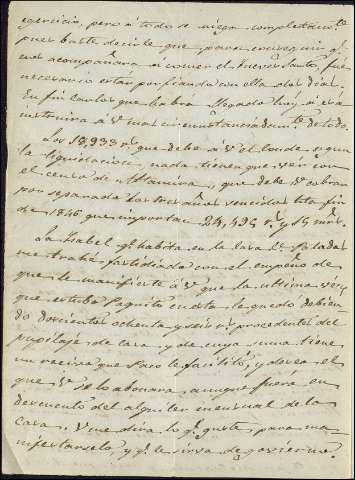 egercicio, pero á todo se niega completamte.
pues baste decirle que para conseguir qe.
nos acompañara á comer el Jueves Santo, fué
necesario estar porfiando con ella dos dias.
En fin Carlos que habra llegado hoy á esa
instruira á V. mas circunstanciadamte. de todo.
Los 18,933 rs. que debe á V. el Conde segun
la liquidacion, nada tienen que ver con
el censo de Altamira, que debe V. cobrar
por separado los tres años vencidos hta. fin
de 1846 que importan 24,495 rs. y 15 mrs.
La Isabel qe. habita en la casa de Posadas
me trahe fastidiado con el empeño de
que le manifieste á V. que la ultima vez
que estubo Paquito en esta le quedó debien-
do doscientos ochenta y seis rs. procedentes del
pupilaje de casa y de cuya suma tiene
un recivo que Paco le facilitó, y desea el
que V. se lo abonara aunque fuera en
descuento del alquiler mensual de la
casa. V. me dira lo qe. guste, para ma-
nifestarselo, y qe. le sirva de govierno.